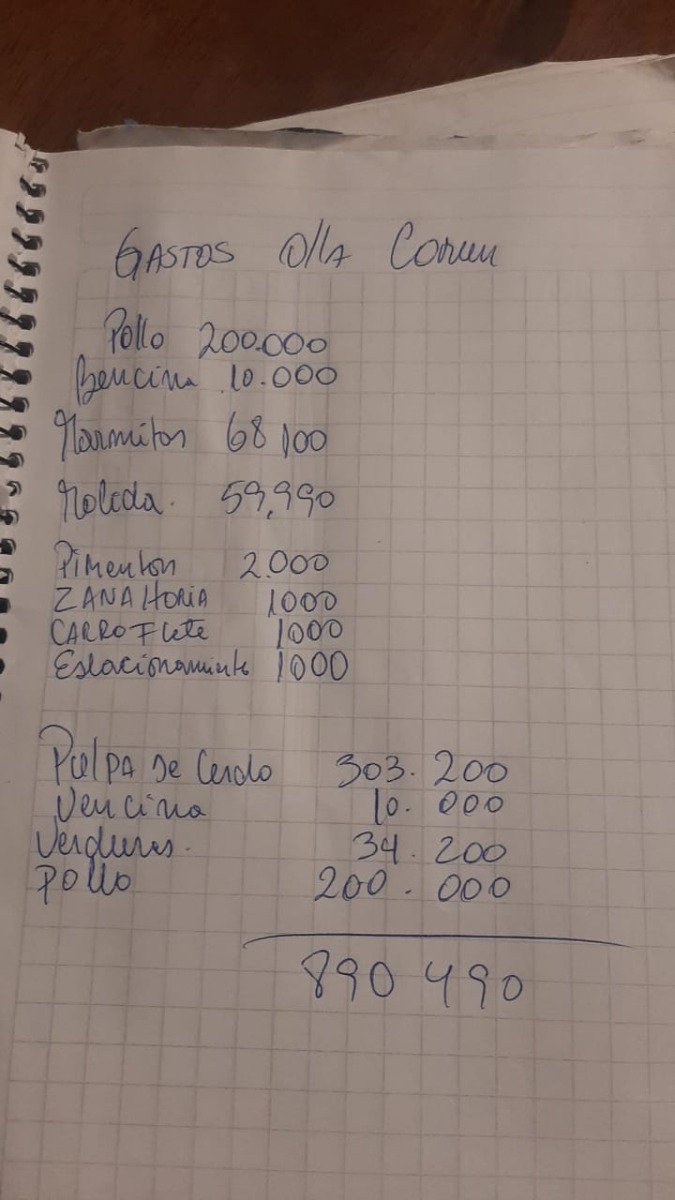 GASTOS OllA Comun
Pollo 200.000
Bencina 10.000
Marmitas 68 100
Molida. 59,990
Pimenton 2.000
ZANAHORIA 1000
CARRO Flete 1000
Estacionamiento 1000
PulPA De Cerdo 303.200
Vencina 10.000
Verduras. 34.200
Pollo 200.000
890 490